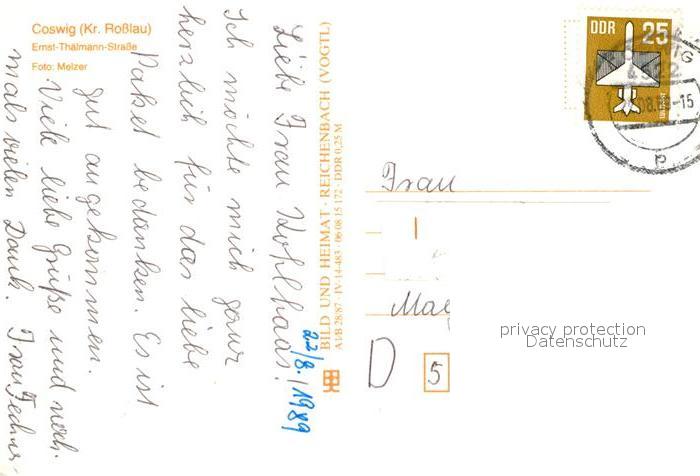 Coswig (Kr. Roßlau)
Ernst-Thälmann-Straße
Foto: Melzer
Liebe Frau Wohlhaas!
Ich möchte mich ganz
herzlich für das liebe
Paket bedanken. Es ist
gut angekommen.
Viele liebe Grüße und noch-
mals vielen Dank. Frau
22/8. 1989
BILD UND HEIMAT · REICHENBACH (VOGTL)
A1/B 28/87 · IV-14-483 · 06 08 15 172 · DDR 0,25 M
DDR 25
LUFTPOST
-15
Frau
D 5
privacy protection
Datenschutz